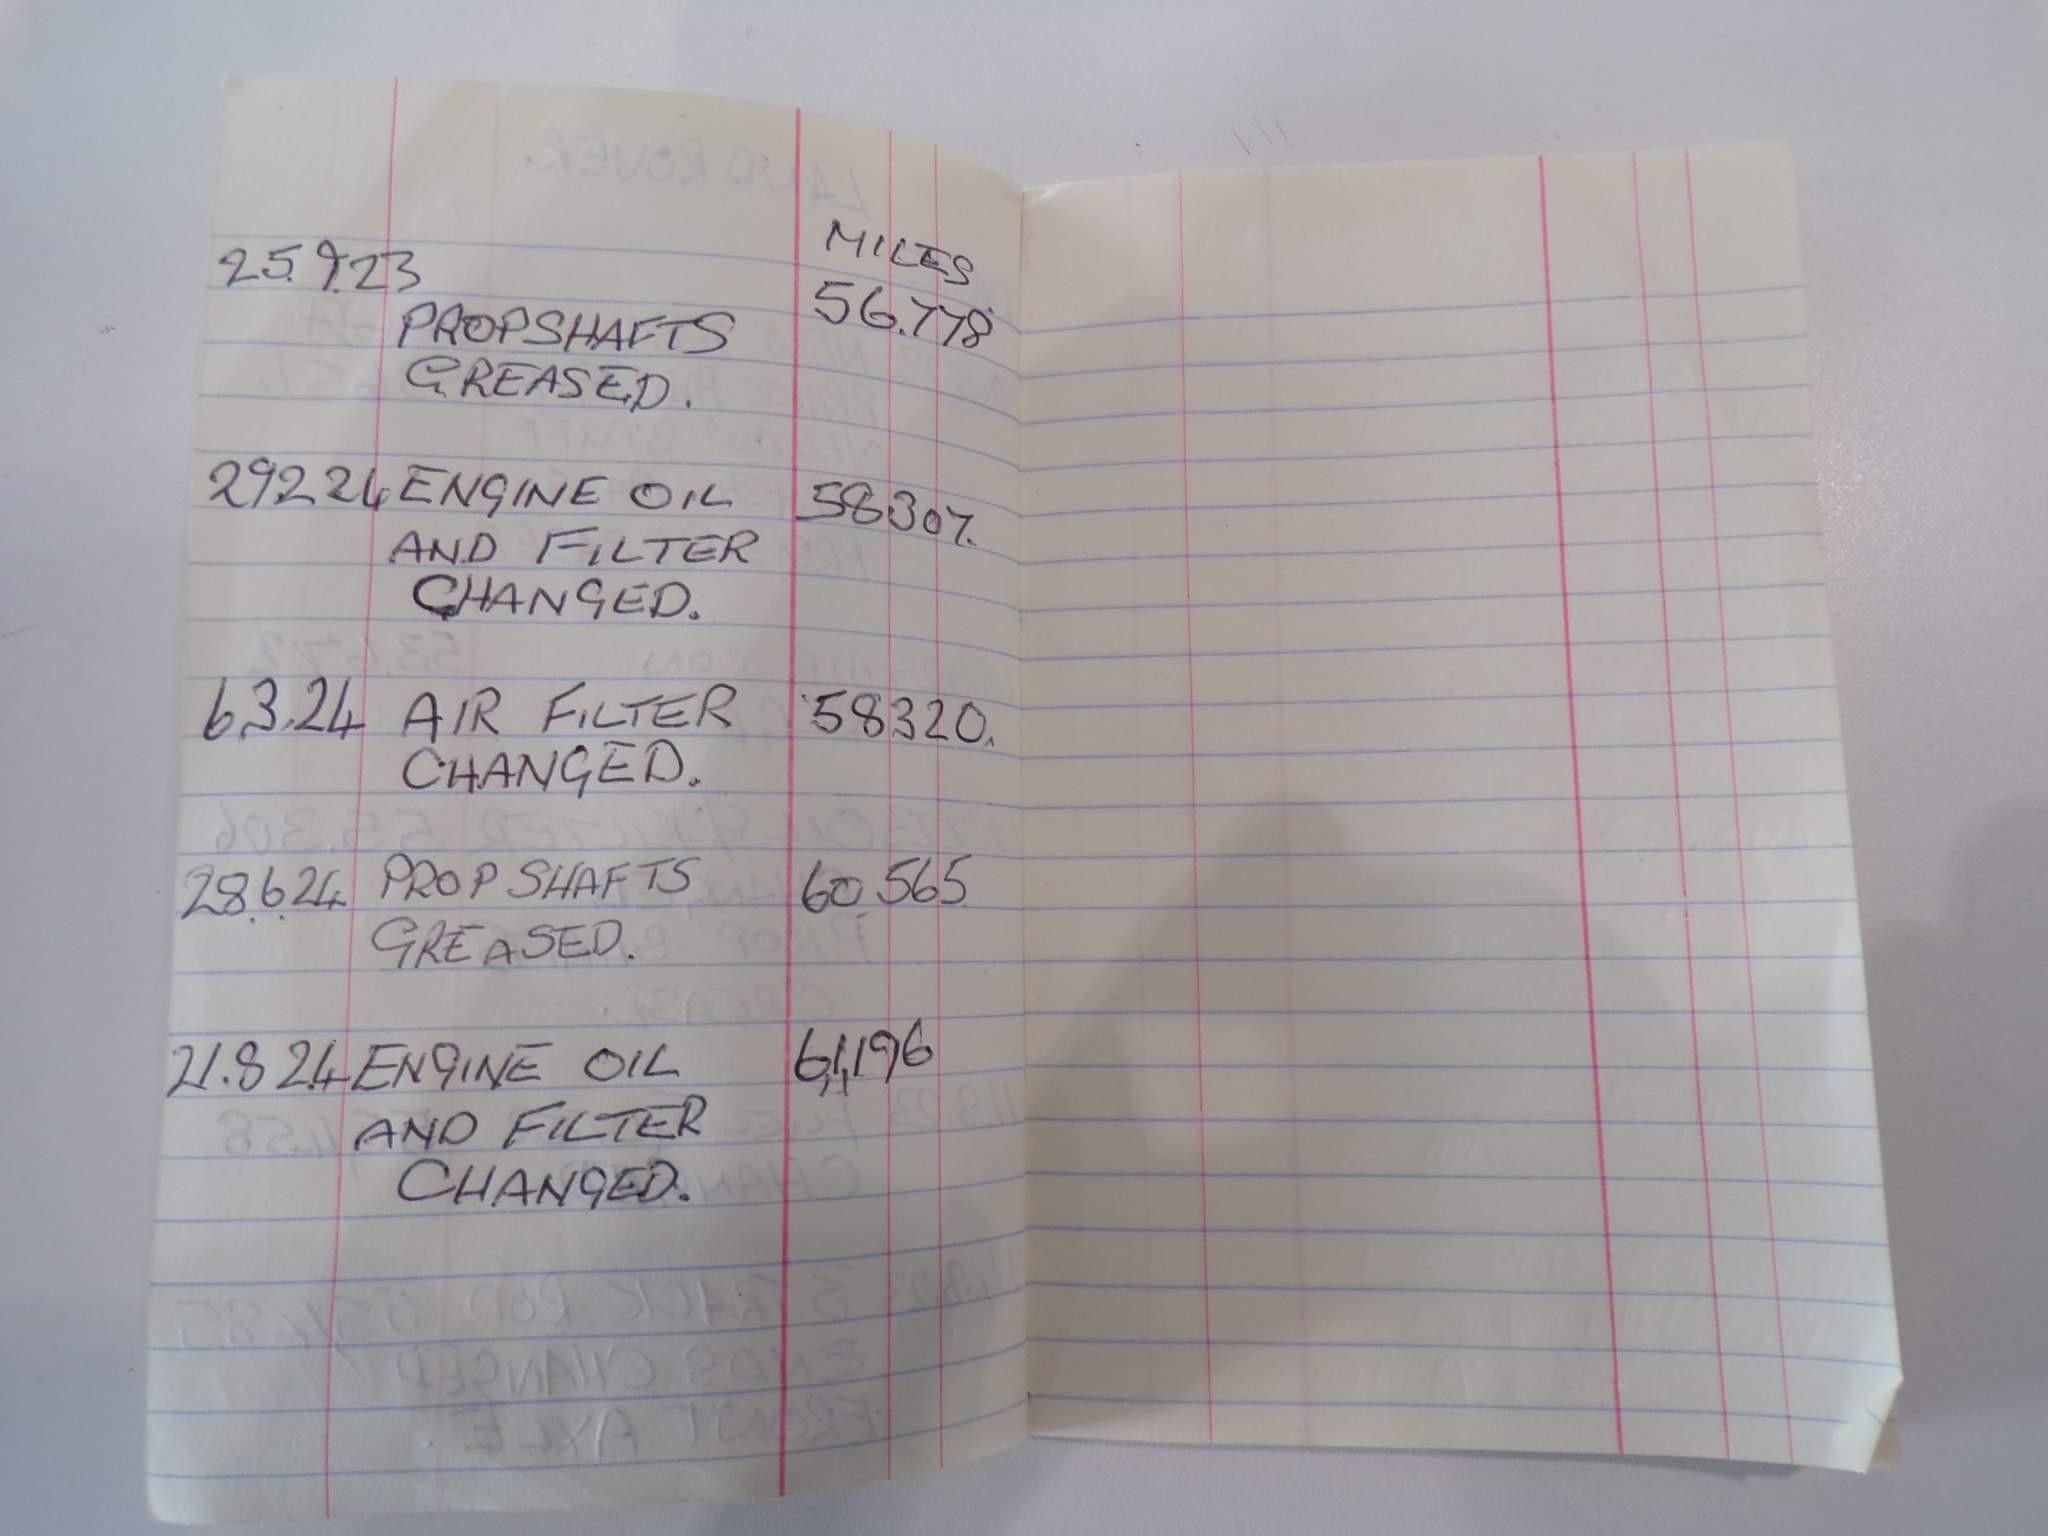 MILES
25.9.23 56.778
PROPSHAFTS
GREASED.
29224 ENGINE OIL 58307.
AND FILTER
CHANGED.
6.3.24 AIR FILTER 58320.
CHANGED.
28.6.24 PROPSHAFTS 60565
GREASED.
21.8 24 ENGINE OIL 61,196
AND FILTER
CHANGED.